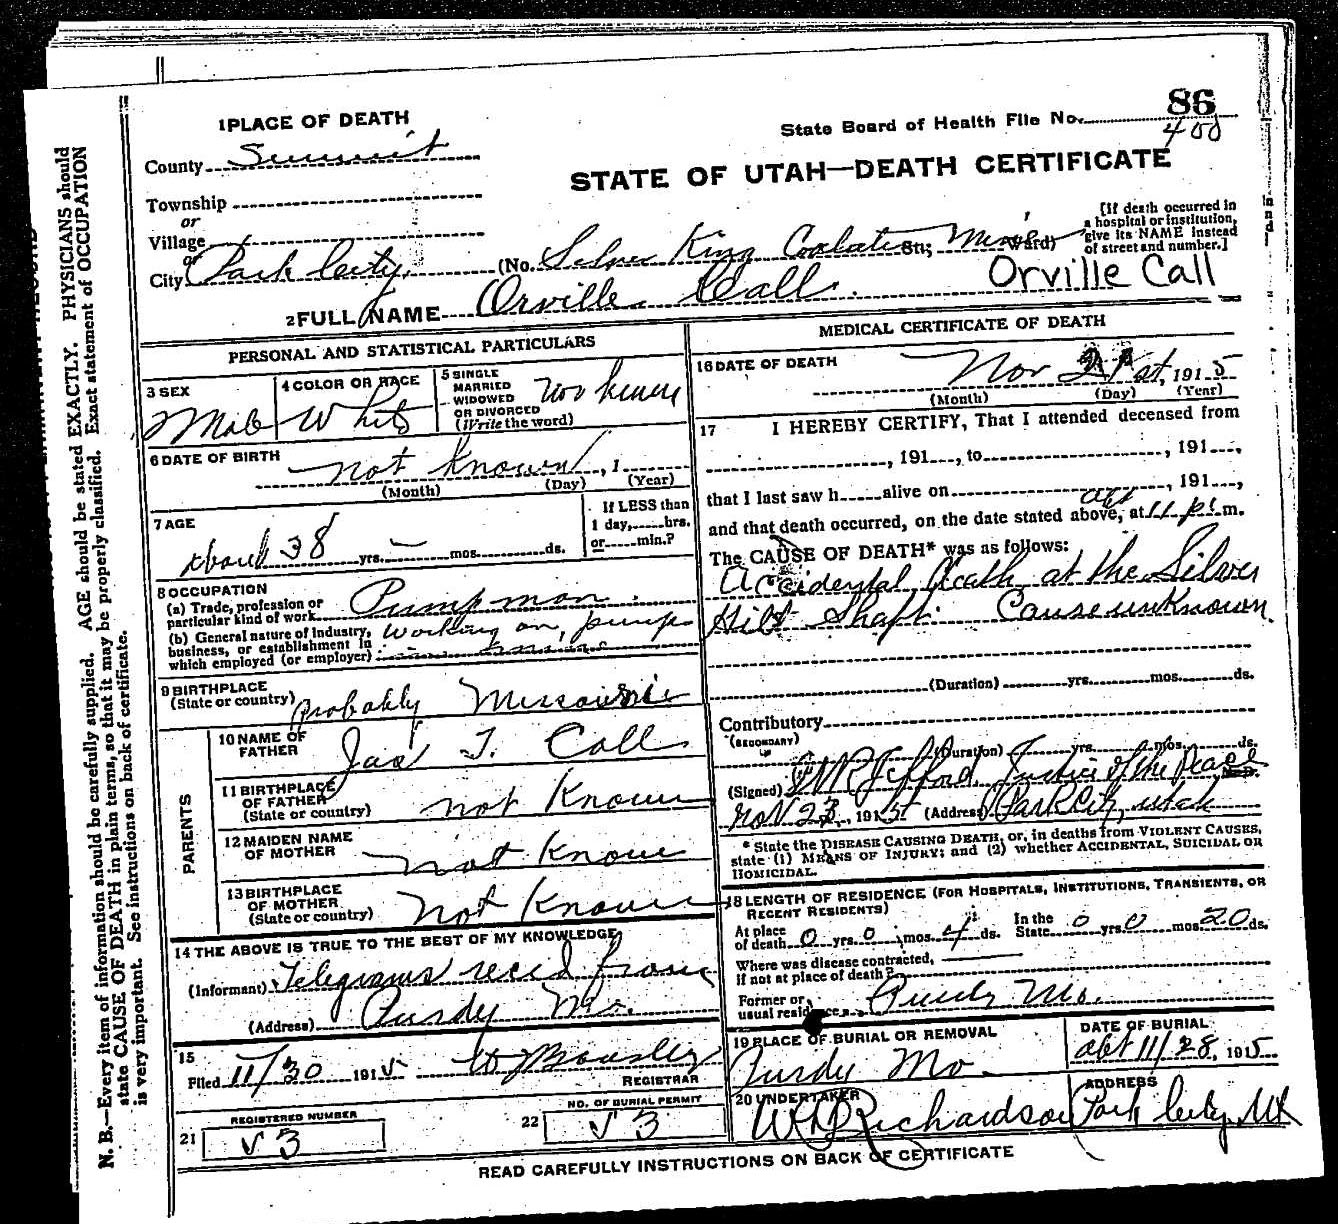 86
400
1 PLACE OF DEATH
State Board of Health File No.
County Summit
STATE OF UTAH—DEATH CERTIFICATE
Township
or
Village
or
City Park City (No. Silver King Coalation St.; Mine Ward)
[If death occurred in
a hospital or institution,
give its NAME instead
of street and number.]
2 FULL NAME Orville Call. Orville Call
PERSONAL AND STATISTICAL PARTICULARS
3 SEX
Male
4 COLOR OR RACE
White
5 SINGLE
MARRIED
WIDOWED
OR DIVORCED
(Write the word)
6 DATE OF BIRTH not known, 1
(Month) (Day) (Year)
7 AGE
About 38 yrs. — mos. ds.
If LESS than
1 day, hrs.
or min.?
8 OCCUPATION
(a) Trade, profession or
particular kind of work Pumpman.
(b) General nature of industry,
business, or establishment in
which employed (or employer) Working on pumps
9 BIRTHPLACE
(State or country) Probably Missourie
PARENTS
10 NAME OF
FATHER Jas T. Call
11 BIRTHPLACE
OF FATHER
(State or country) not Known
12 MAIDEN NAME
OF MOTHER not Known
13 BIRTHPLACE
OF MOTHER
(State or country) Not Known
14 THE ABOVE IS TRUE TO THE BEST OF MY KNOWLEDGE
(Informant) Telegrams recd from
(Address) Purdy Mo.
15
Filed 11/30 1915
REGISTRAR
REGISTERED NUMBER
21 V 3
NO. OF BURIAL PERMIT
22 V 3
MEDICAL CERTIFICATE OF DEATH
16 DATE OF DEATH
Nov 21st, 1915
(Month) (Day) (Year)
17 I HEREBY CERTIFY, That I attended deceased from
, 191 , to , 191 ,
that I last saw h alive on , 191 ,
abt
and that death occurred, on the date stated above, at 11 p. m.
The CAUSE OF DEATH* was as follows:
Accidental death at the Silver
Hill Shaft. Cause unknown
(Duration) yrs. mos. ds.
Contributory
(SECONDARY)
(Duration) yrs. mos. ds.
(Signed) Justice of the Peace M.D.
Nov 23, 1915 (Address) Park City, Utah
* State the DISEASE CAUSING DEATH, or, in deaths from VIOLENT CAUSES,
state (1) MEANS OF INJURY; and (2) whether ACCIDENTAL, SUICIDAL OR
HOMICIDAL.
18 LENGTH OF RESIDENCE (FOR HOSPITALS, INSTITUTIONS, TRANSIENTS, OR
RECENT RESIDENTS)
At place
of death 0 yrs. 0 mos. 4 ds.
In the
State 0 yrs 0 mos. 20 ds.
Where was disease contracted,
if not at place of death?
Former or
usual residence Purdy Mo.
19 PLACE OF BURIAL OR REMOVAL
Purdy Mo.
DATE OF BURIAL
abt 11/28, 1915
20 UNDERTAKER
Richardson
ADDRESS
Park City, Ut
READ CAREFULLY INSTRUCTIONS ON BACK OF CERTIFICATE
N. B.—Every item of information should be carefully supplied. AGE should be stated EXACTLY. PHYSICIANS should
state CAUSE OF DEATH in plain terms, so that it may be properly classified. Exact statement of OCCUPATION
is very important. See instructions on back of certificate.